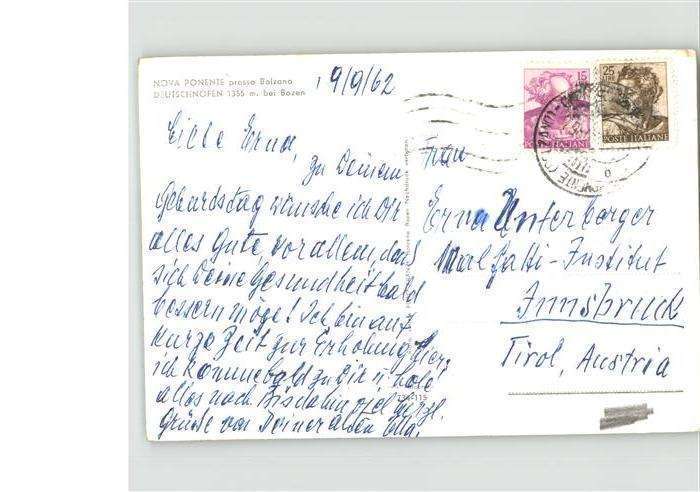 NOVA PONENTE presso Bolzano
DEUTSCHNOFEN 1355 m. bei Bozen
19/9/62
15
25
POSTE ITALIANE
POSTE ITALIANE
Liebe Erna,
zu Deinem
Geburtstag wünsche ich Dir
alles Gute, vor allem, dass
sich Deine Gesundheit bald
bessern möge! Ich bin auf
kurze Zeit zur Erholung hier,
ich komme bald zu Dir u. hole
alles nach Bis dahin viel herzl.
Grüsse von Deiner alten
Frau
Erna Unterberger
Malfatti-Institut
Innsbruck
Tirol, Austria